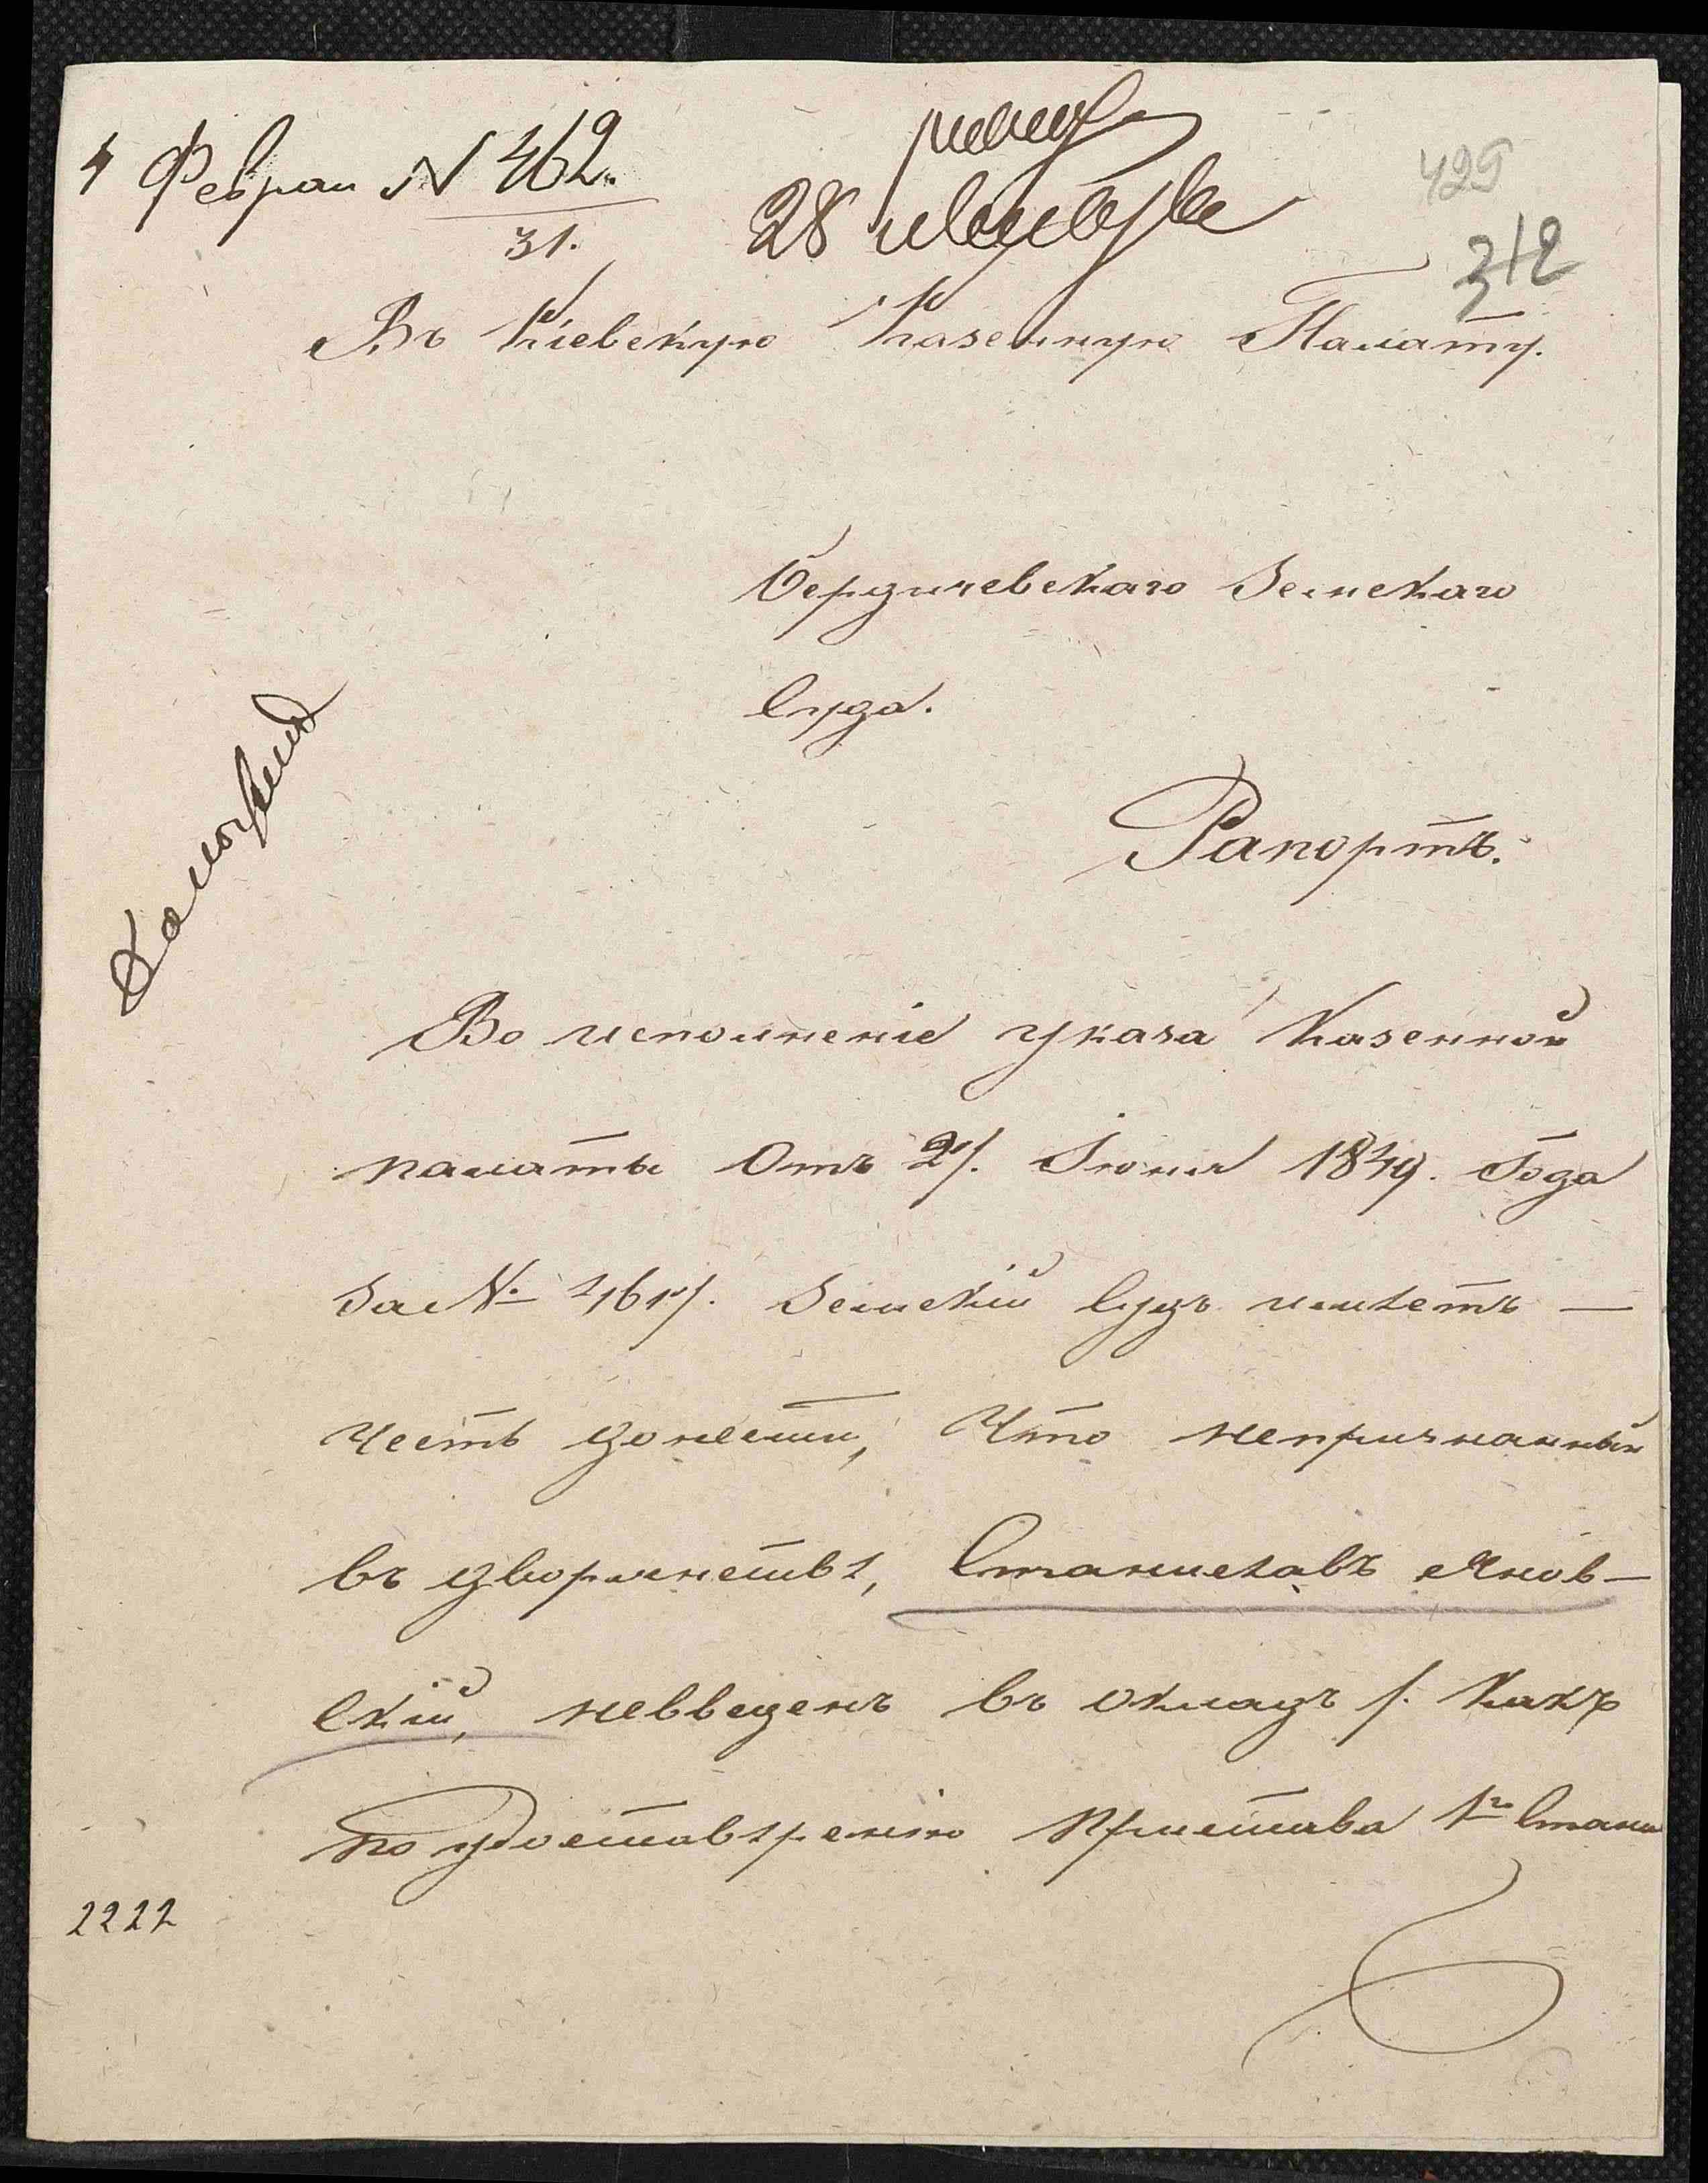 4 Феврал N 462.
31.
28
425
312
Въ Кіевскую Казенную Палату.
Бердичевскаго Земскаго
Суда.
Рапортъ.
Во исполненіе указа Казенной
палаты Отъ 27. Іюня 1849. Года
За № 4617. Земскій Судъ имѣетъ —
Честь донести, Что непризнанный
въ дворянствѣ, Станиславъ Янов-
скій, невведенъ въ окладъ /. Какъ
по удоставѣренію Пристава 1го Стана
2222